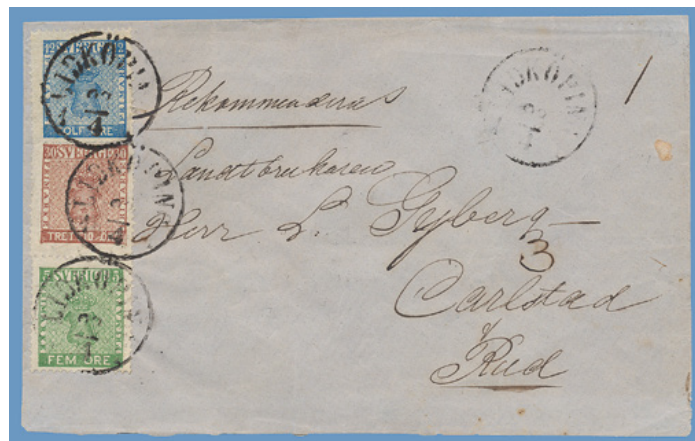 12 SVERIGE 12
TOLF ÖRE
LIDKÖPING
30 SVERIGE 30
TRETTIO ÖRE
LIDKÖPING
SVERIGE 5
FEM ÖRE
LIDKÖPING
LIDKÖPING
1
Rekommenderas
Landtbrukaren
Herr L. Gyberg
3
Carlstad
Rud